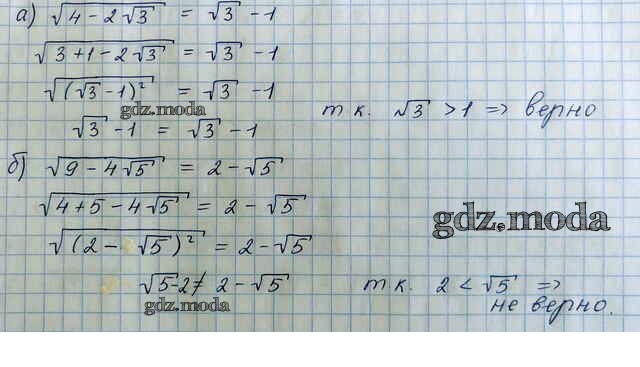 а) √(4 - 2√3) = √3 - 1
√(3 + 1 - 2√3) = √3 - 1
√((√3 - 1)²) = √3 - 1
gdz.moda
√3 - 1 = √3 - 1 т.к. √3 > 1 => верно
б) √(9 - 4√5) = 2 - √5
√(4 + 5 - 4√5) = 2 - √5
gdz.moda
√((2 - √5)²) = 2 - √5
√5 - 2 ≠ 2 - √5 т.к. 2 < √5 =>
gdz.moda
не верно.